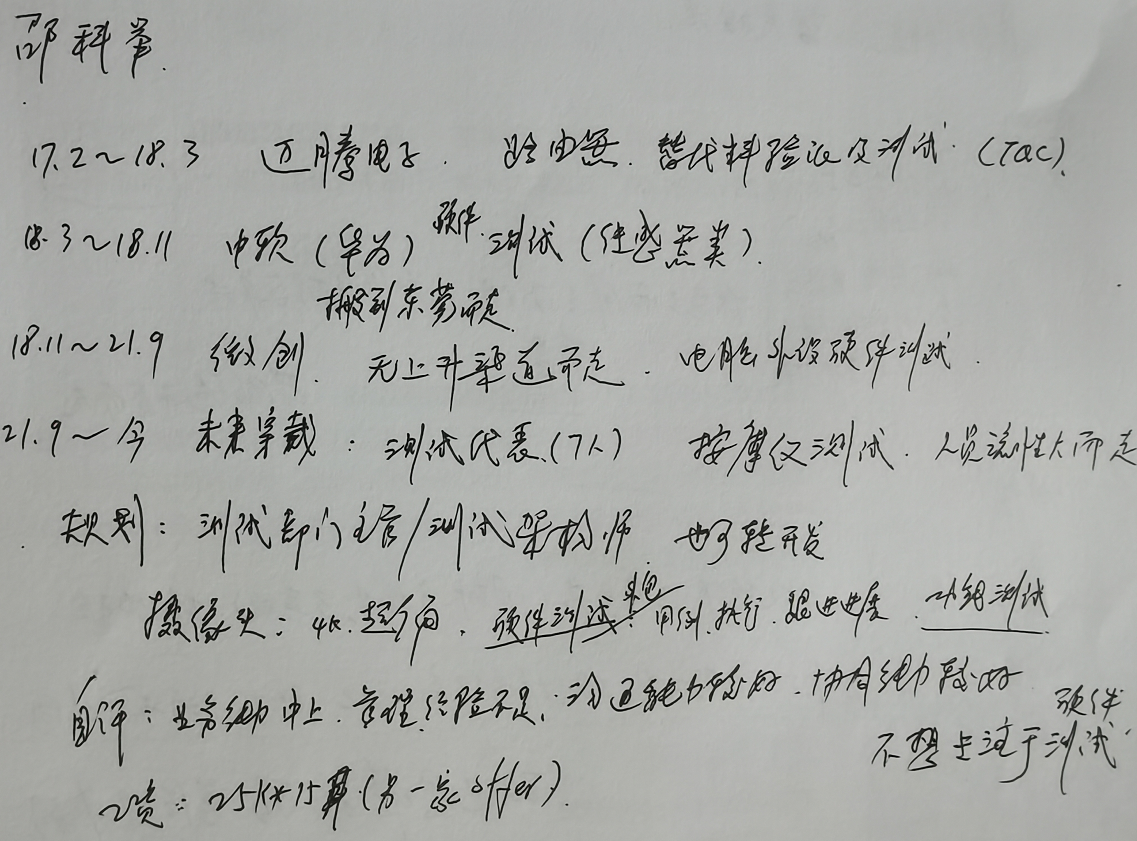 邵科
17.2～18.3 迈腾电子. 路由器. 替代料验证及测试. (TQC).
18.3～18.11 中软 (华为) 硬件测试 (传感器类).
搬到东莞而走.
18.11～21.9 微创. 无上升渠道而走. 电脑外设硬件测试.
21.9～今 未来穿戴: 测试代表. (7人) 按摩仪测试. 人员流性大而走
规划: 测试部门主管/测试架构师 也可转开发
摄像头: 4K. 超清. 硬件测试: 用例. 执行. 跟进进度. 功能测试
自评: 业务能力中上. 管理经验不足. 沟通能力较好. 协有能力较好
不想专注于硬件测试.
工资: 25K*15薪. (另一家offer).